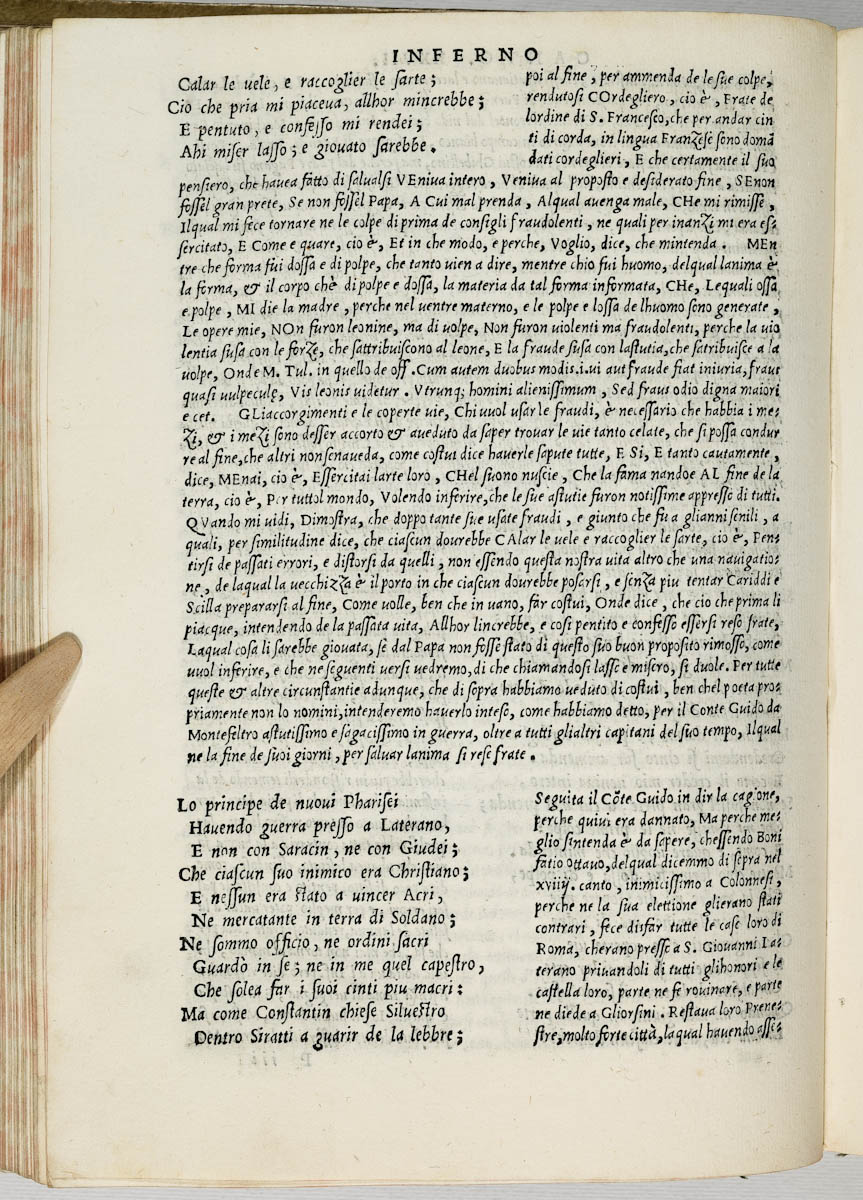 INFERNO
Calar le uele, e raccoglier le sarte;
Cio che pria mi piaceua, allhor mincrebbe;
E pentuto, e confesso mi rendei;
Ahi miser lasso; e giouato sarebbe.
poi al fine, per ammenda de le sue colpe,
rendutosi COrdegliero, cio è, Frate de
lordine di S. Francesco, che per andar cin
ti di corda, in lingua Franzese sono domã
dati cordeglieri, E che certamente il suo
pensiero, che hauea fatto di saluarsi VEniua intero, Veniua al proposto e desiderato fine, SE non
fossel gran prete, Se non fossel Papa, A Cui mal prenda, Alqual auenga male, CHe mi rimisse,
Ilqual mi fece tornare ne le colpe di prima de consigli fraudolenti, ne quali per inanzi mi era es-
sercitato, E Come e quare, cio è, Et in che modo, e perche, Voglio, dice, che mintenda. MEn
tre che forma fui dossa e di polpe, che tanto uien a dire, mentre chio fui huomo, delqual lanima è
la forma, & il corpo chè di polpe e dossa, la materia da tal forma informata, CHe, Lequali ossa
e polpe, MI die la madre, perche nel uentre materno, e le polpe e lossa de lhuomo sono generate,
Le opere mie, NOn furon leonine, ma di uolpe, Non furon uiolenti ma fraudolenti, perche la uio
lentia susa con le forze, che sattribuiscono al leone, E la fraude susa con lastutia, che satribuisce a la
uolpe, Onde M. Tul. in quello de off. Cum autem duobus modis.i.ui aut fraude fiat iniuria, fraus
quasi uulpeculę, Vis leonis uidetur. Vtrunq; homini alienissimum, Sed fraus odio digna maiori
e cet. GLi accorgimenti e le coperte uie, Chi uuol usar le fraudi, è necessario che habbia i me-
zi, & i mezi sono desser accorto & aueduto da saper trouar le uie tanto celate, che si possa condur
re al fine, che altri non senaueda, come costui dice hauerle sapute tutte, E Si, E tanto cautamente,
dice, MEnai, cio è, Essercitai larte loro, CHel suono nuscie, Che la fama nandoe AL fine de la
terra, cio è, Per tuttol mondo, Volendo inferire, che le sue astutie furon notissime appresso di tutti.
QVando mi uidi, Dimostra, che doppo tante sue usate fraudi, e giunto che fu a glianni senili, a
quali, per similitudine dice, che ciascun dourebbe CAlar le uele e raccoglier le sarte, cio è, Pen-
tirsi de passati errori, e distorsi da quelli, non essendo questa nostra uita altro che una nauigatio-
ne, de laqual la uecchizza è il porto in che ciascun dourebbe posarsi, e senza piu tentar Cariddi e
Scilla prepararsi al fine, Come uolle, ben che in uano, far costui, Onde dice, che cio che prima li
piacque, intendendo de la passata uita, Allhor lincrebbe, e cosi pentito e confesso essersi reso frate,
Laqual cosa li sarebbe giouata, se dal Papa non fosse stato di questo suo buon proposito rimosso, come
uuol inferire, e che ne seguenti uersi uedremo, di che chiamandosi lasso e misero, si duole. Per tutte
queste & altre circunstantie adunque, che di sopra habbiamo ueduto di costui, ben chel poeta pro-
priamente non lo nomini, intenderemo hauerlo inteso, come habbiamo detto, per il Conte Guido da
Montefeltro astutissimo e sagacissimo in guerra, oltre a tutti glialtri capitani del suo tempo, Ilqual
ne la fine de suoi giorni, per saluar lanima si rese frate.
Lo principe de nuoui Pharisei
Hauendo guerra presso a Laterano,
E non con Saracin, ne con Giudei;
Che ciascun suo inimico era Christiano;
E nessun era stato a uincer Acri,
Ne mercatante in terra di Soldano;
Ne sommo officio, ne ordini sacri
Guardò in se; ne in me quel capestro,
Che solea far i suoi cinti piu macri:
Ma come Constantin chiese Siluestro
Dentro Siratti a guarir de la lebbre;
Seguita il Cõte Guido in dir la cagione,
perche quiui era dannato, Ma perche me-
glio sintenda è da sapere, chessendo Boni
fatio ottauo, delqual dicemmo di sopra nel
xviiij. canto, inimicissimo a Colonnesi,
perche ne la sua elettione glierano stati
contrari, fece disfar tutte le case loro di
Roma, cherano presso a S. Giouanni La-
terano priuandoli di tutti glihonori e le
castella loro, parte ne fe rouinare, e parte
ne diede a Gliorsini. Restaua loro Prene-
stre, molto forte città, laqual hauendo asse-